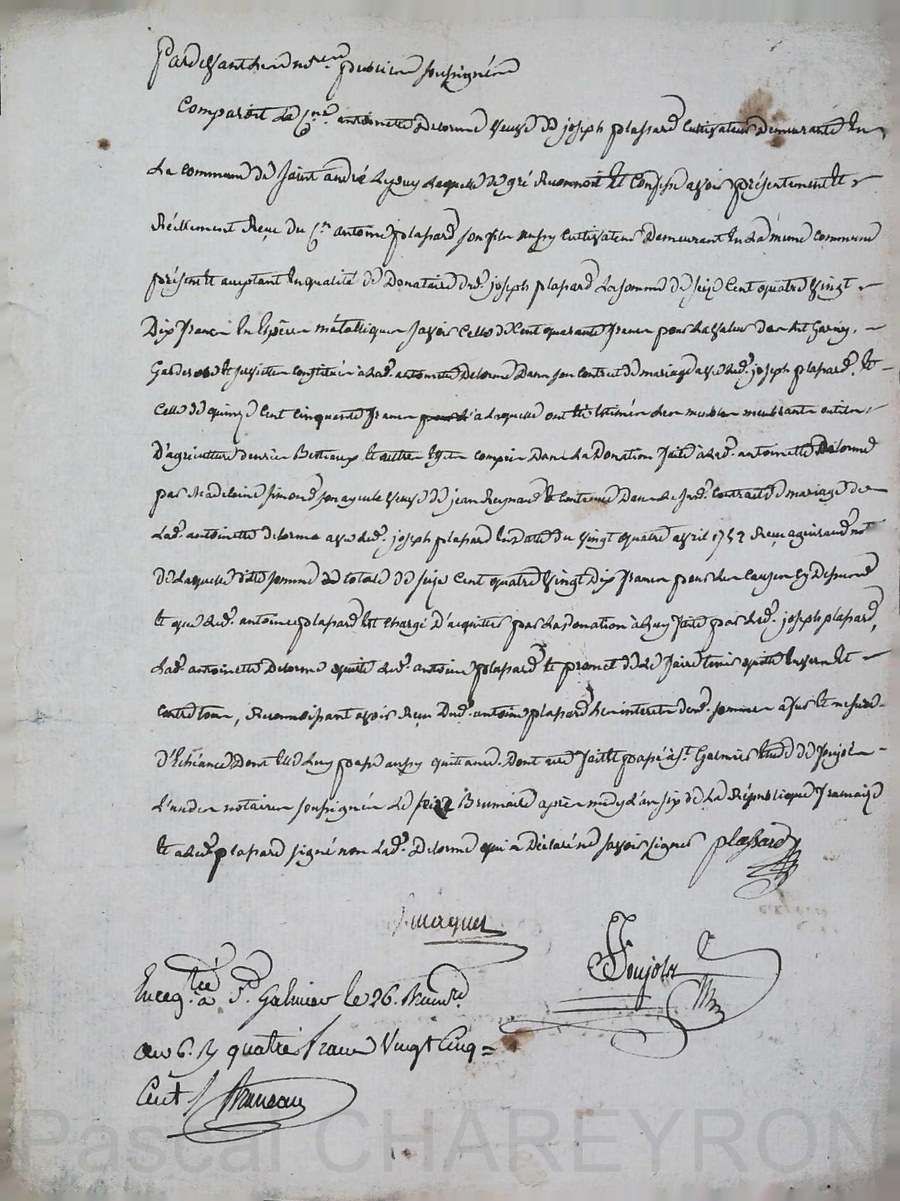 Pardevant les no.res publics soussignés
Comparoit la C.ne antoinette Delorme veuve de joseph plassard Cultivateur Demeurante En
La commune de Saint andré Lepuy Laquelle de gré Reconnoit Et Confesse avoir présentement Et
Réellement Reçu du C.en antoine plassard son fils aussy Cultivateur Demeurant En La même commune
présent Et acceptant En qualité de Donataire dud. joseph plassard La somme de seize Cent quatre vingt
Dix francs En Espèces métalliques savoir Celle de Cent quarante francs pour La valeur d'un lit Garny,
Garderobe Et constitués à Lad. antoinette Delorme Dans son Contrat de mariage avec led. joseph plassard, Et
Celle de quinze Cent Cinquante francs a Laquelle ont Eté Estimés Les meubles meublants outils
D'agriculture denrées Bestiaux Et autres Effets compris Dans La Donation faite à Lad. antoinette Delorme
par Madeleine Simond son ayeule veuve de jean Reynard Et Contenue Dans Le susd. Contract de mariage de
Lad. antoinette Delorme avec led. joseph plassard En Date du vingt quatre avril 1752 Reçu
De Laquelle dite somme totale de seize Cent quatre vingt Dix francs pour Les Causes Cy Dessus
Et que led. antoine plassard Est Chargé D'acquitter par La Donation à Luy faite par led. joseph plassard,
Lad. antoinette Delorme quitte led. antoine plassard Et promet de Le faire tenir quitte Envers Et
Contre tous, Reconnoissant avoir Reçu Dud. antoine plassard Les interets desd. sommes à fur Et mesure
D'Echéance Dont Elle Luy passe aussy quittance. Dont acte fait Et passé à St. Galmier Etude de Poujols
L'un des notaires soussignés Le seize Brumaire après midy L'an six de La République francaise
Et a led. plassard signé non Lad. Delorme qui a Déclaré ne savoir signer plassard
Poujols
Enreg.tré à St. Galmier le 26. Brum.re
an 6. R quatre francs Vingt Cinq
Cent.